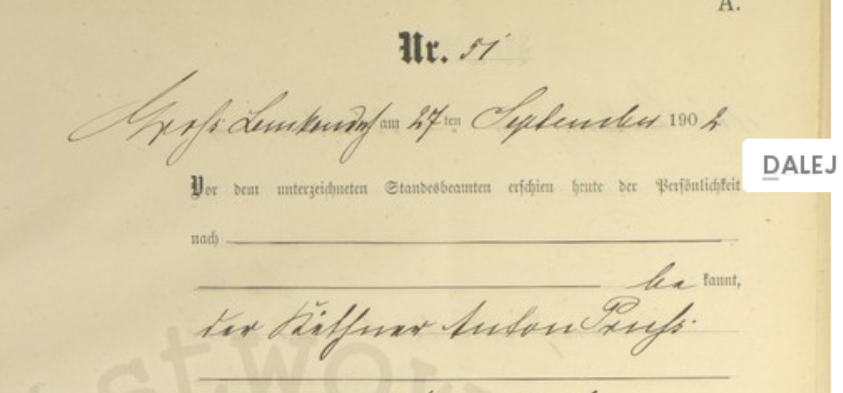 A.
Nr. 51
Groß Lemkendorf am 27ten September 1902
DALEJ
Vor dem unterzeichneten Standesbeamten erschien heute der Persönlichkeit
nach
be kannt,
der Käthner Anton